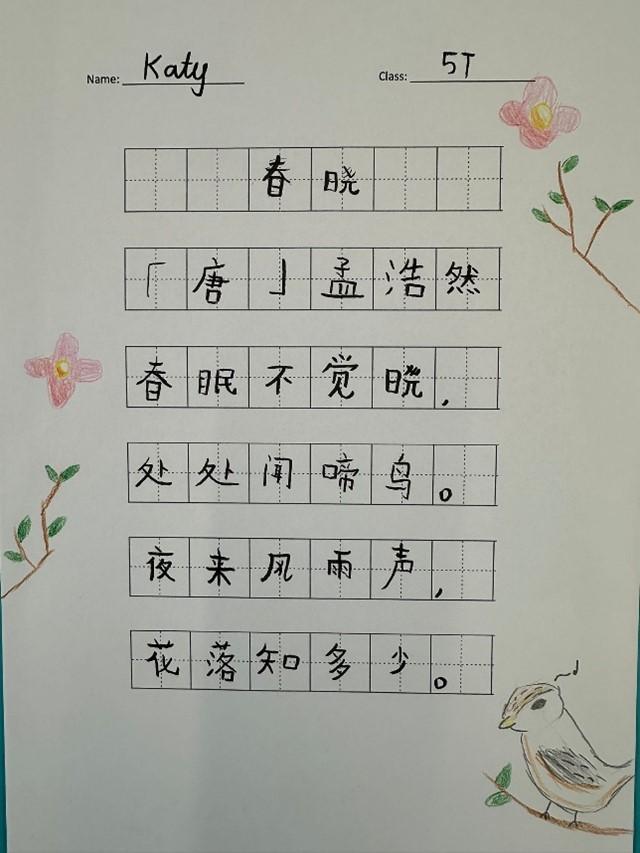 Name: Katy Class: 5T
春晓
「唐」孟浩然
春眠不觉晓,
处处闻啼鸟。
夜来风雨声,
花落知多少。